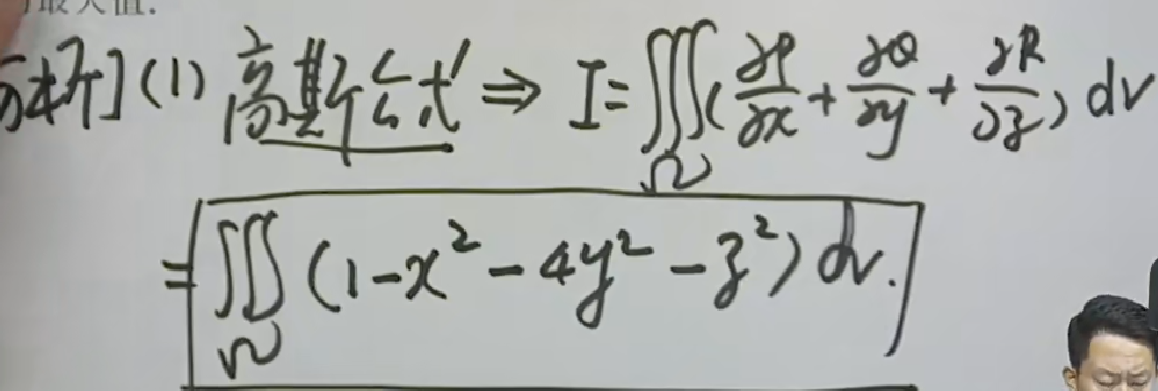 最大值.
[解析] (1) 高斯公式 ⇒ I = ∭_Ω (∂P/∂x + ∂Q/∂y + ∂R/∂z) dv
= ∭_Ω (1 - x² - 4y² - z²) dv.